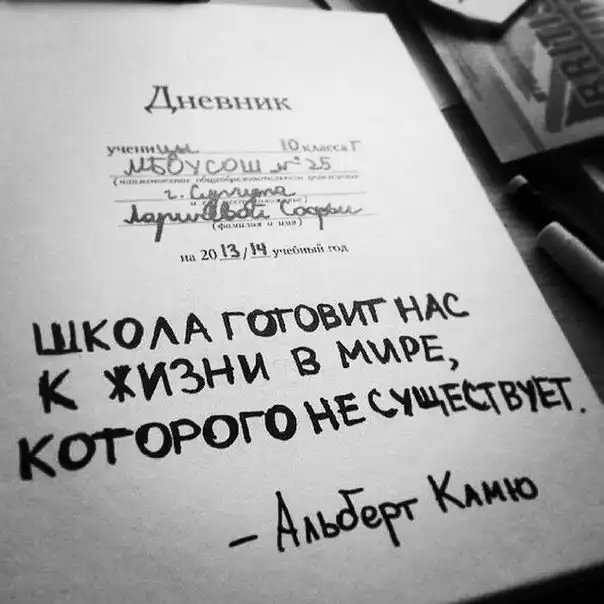 Дневник
ученицы 10 класса Г
МБОУСОШ №25
(наименование общеобразовательного учреждения)
г. Сургута
Софьи
(фамилия и имя)
на 2013/14 учебный год
ШКОЛА ГОТОВИТ НАС
К ЖИЗНИ В МИРЕ,
КОТОРОГО НЕ СУЩЕСТВУЕТ.
– Альберт Камю